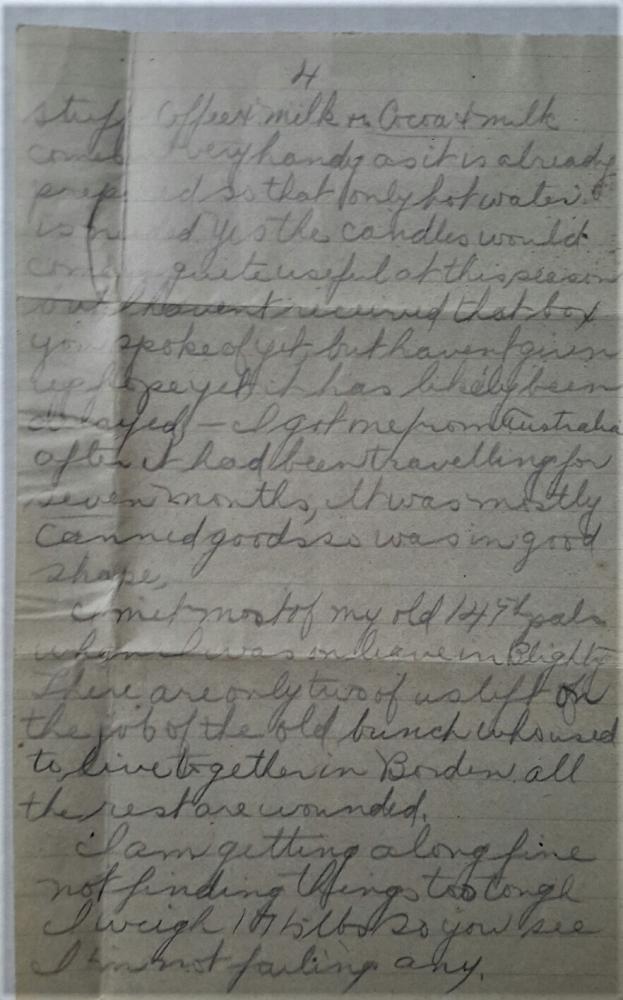 4
stuff Coffee & milk or Cocoa & milk
comes very handy as it is already
prepared so that only hot water
is needed Yes the candles would
come in quite useful at this season
but I havent received that box
you spoke of yet, but havent given
up hope yet it has likely been
delayed – I got one from Australia
after it had been travelling for
seven months, It was mostly
Canned goods so was in good
shape,
I met most of my old 147th pals
when I was on leave in Blighty
There are only two of us left on
the job of the old bunch who used
to live together in Borden all
the rest are wounded.
I am getting along fine
not finding things too tough
I weigh lbs so you see
I am not failing any.